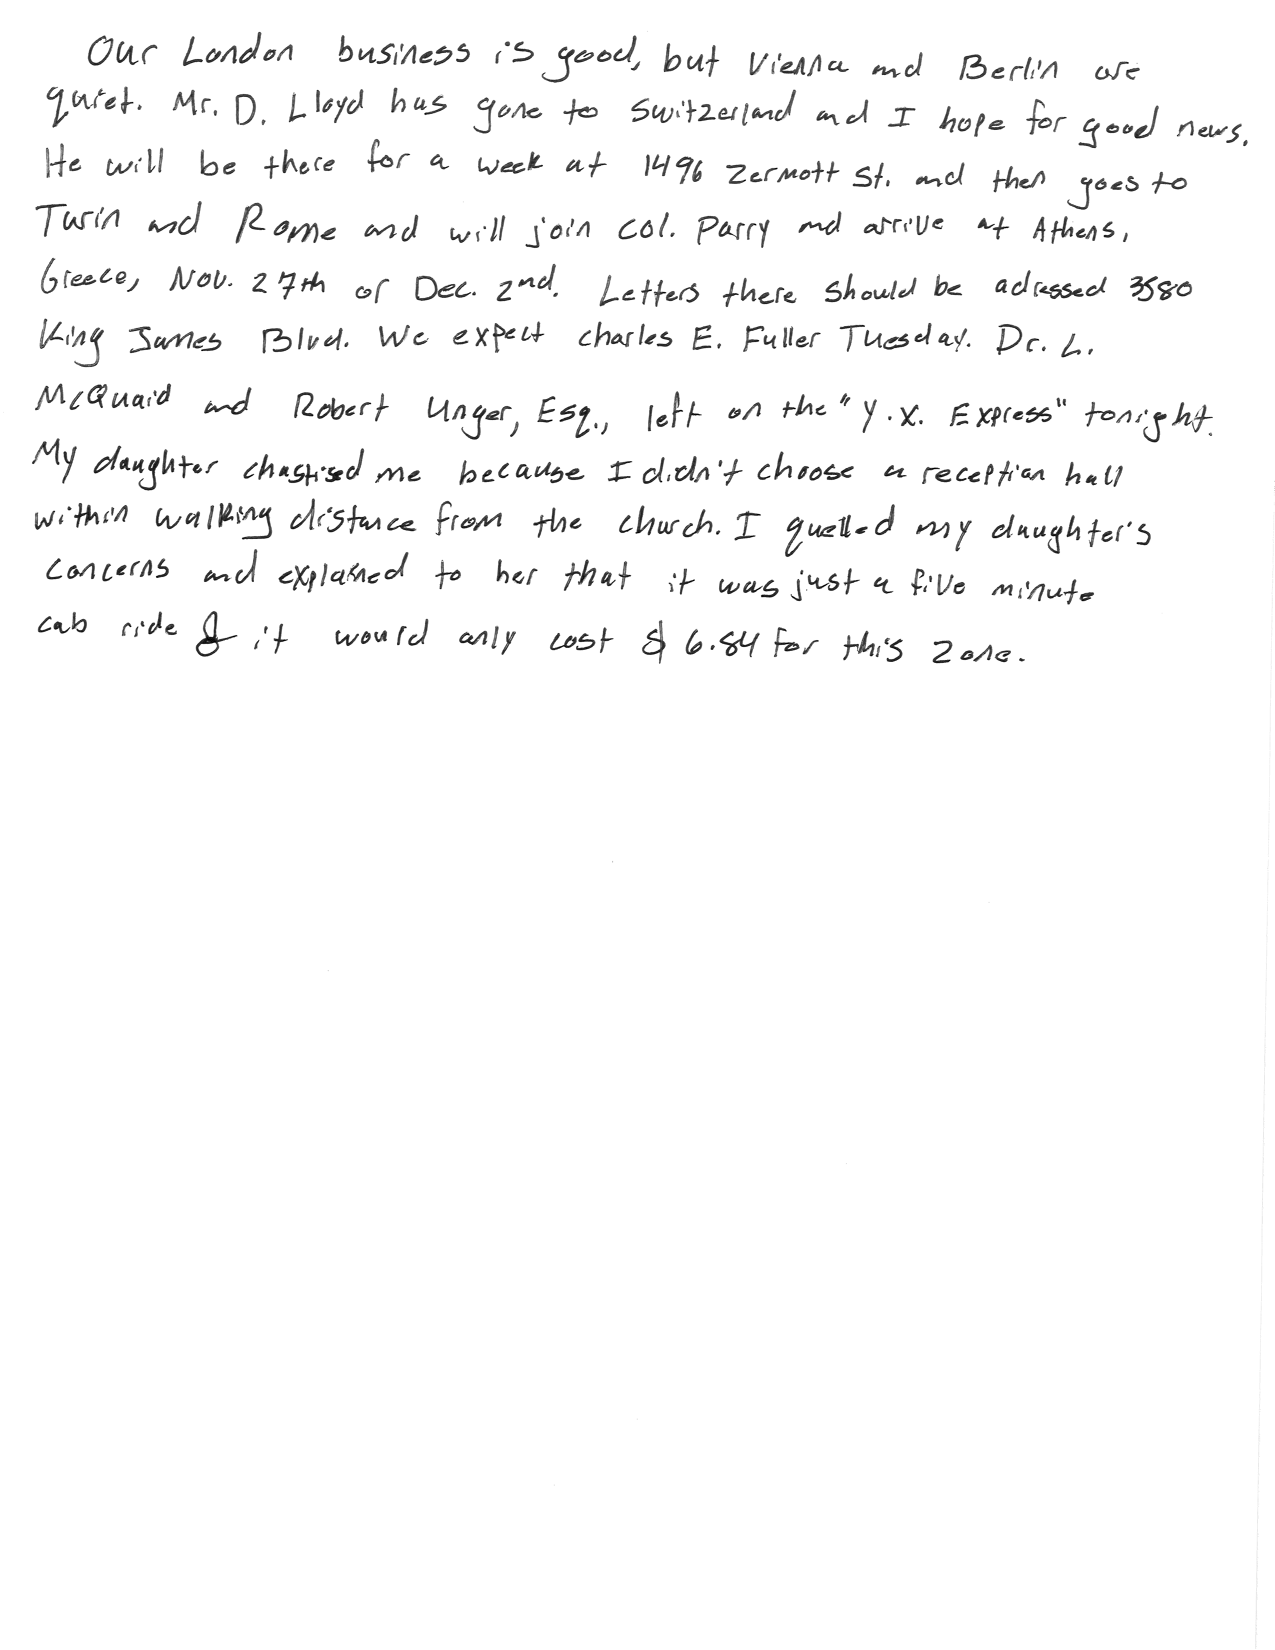 Our London business is good, but Vienna and Berlin are
quiet. Mr. D. Lloyd has gone to Switzerland and I hope for good news.
He will be there for a week at 1496 Zermott St. and then goes to
Turin and Rome and will join Col. Parry and arrive at Athens,
Greece, Nov. 27th or Dec. 2nd. Letters there should be adressed 3580
King James Blvd. We expect Charles E. Fuller Tuesday. Dr. L.
McQuaid and Robert Unger, Esq., left on the "Y.X. Express" tonight.
My daughter chastised me because I didn't choose a reception hall
within walking distance from the church. I quelled my daughter's
concerns and explained to her that it was just a five minute
cab ride & it would only cost $6.84 for this zone.